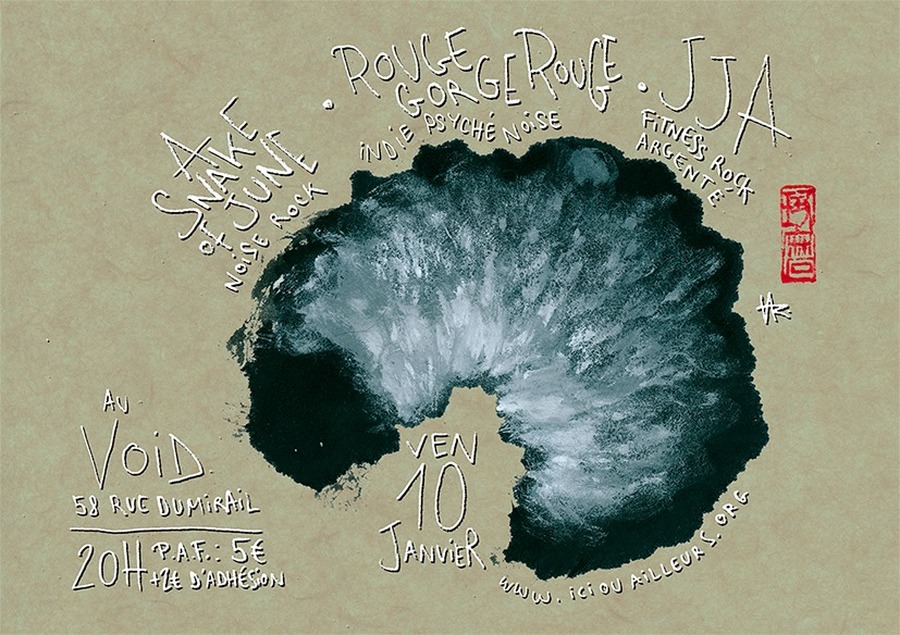 A
SNAKE
OF JUNE
NOISE ROCK
• ROUGE
GORGE ROUGE
INDIE PSYCHÉ NOISE
• JJA
FITNESS ROCK
ARGENTÉ
AU
VOID.
58 RUE DUMIRAIL
20H P.A.F.: 5€
+2€ D'ADHÉSION
VEN
10
JANVIER
WWW.ICIOUAILLEURS.ORG